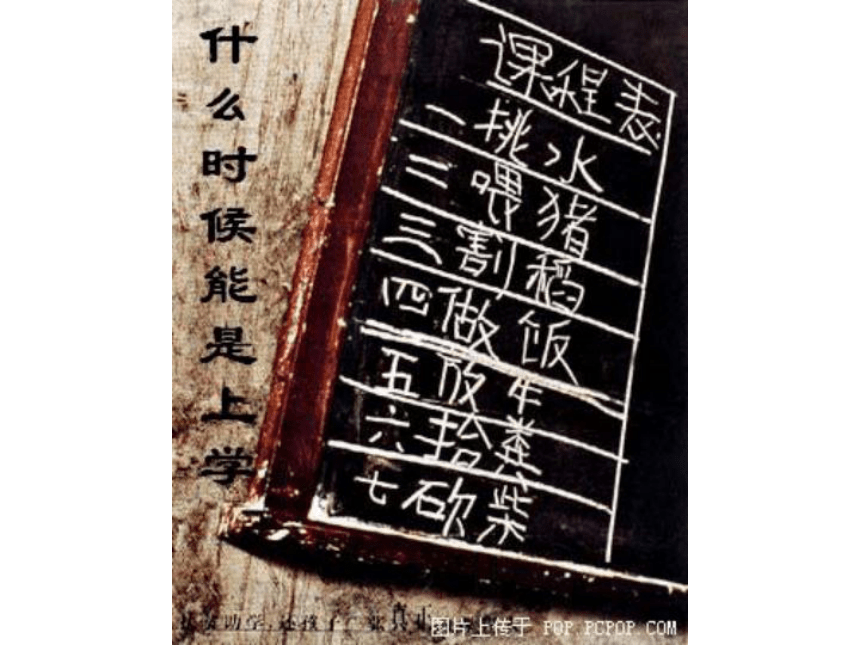 什么时候能是上学
课程表
一挑水
二喂猪
三割稻
四做饭
五放牛
六拾粪
七砍柴
助学,还孩子一张真正
图片上传于 POP.PCPOP.COM